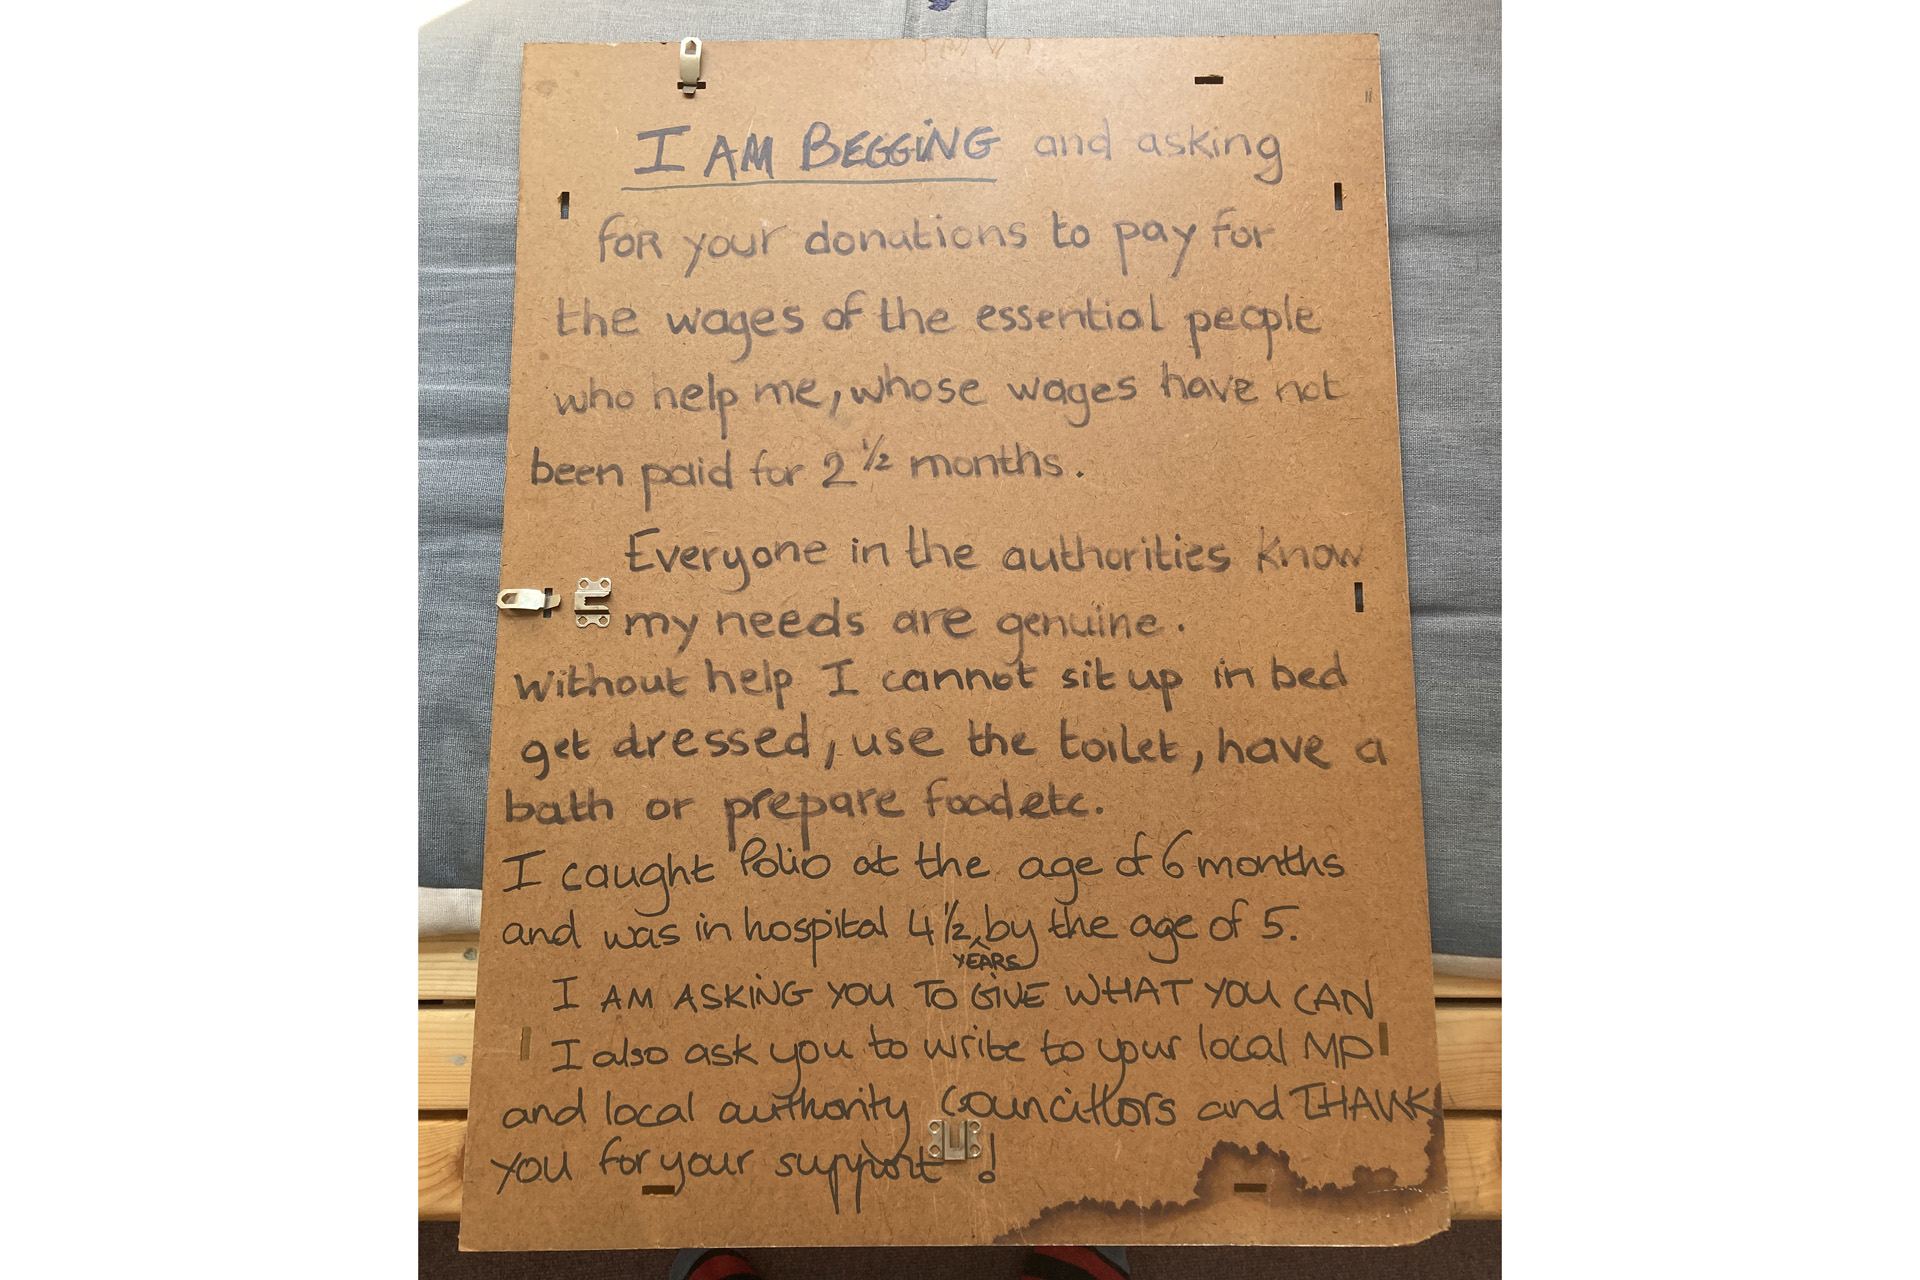 I AM BEGGING and asking
for your donations to pay for
the wages of the essential people
who help me, whose wages have not
been paid for 2 1/2 months.
Everyone in the authorities know
my needs are genuine.
Without help I cannot sit up in bed
get dressed, use the toilet, have a
bath or prepare food etc.
I caught Polio at the age of 6 months
and was in hospital 4 1/2 YEARS by the age of 5.
I AM ASKING YOU TO GIVE WHAT YOU CAN
I also ask you to write to your local MP
and local authority councillors and THANK
YOU for your support!